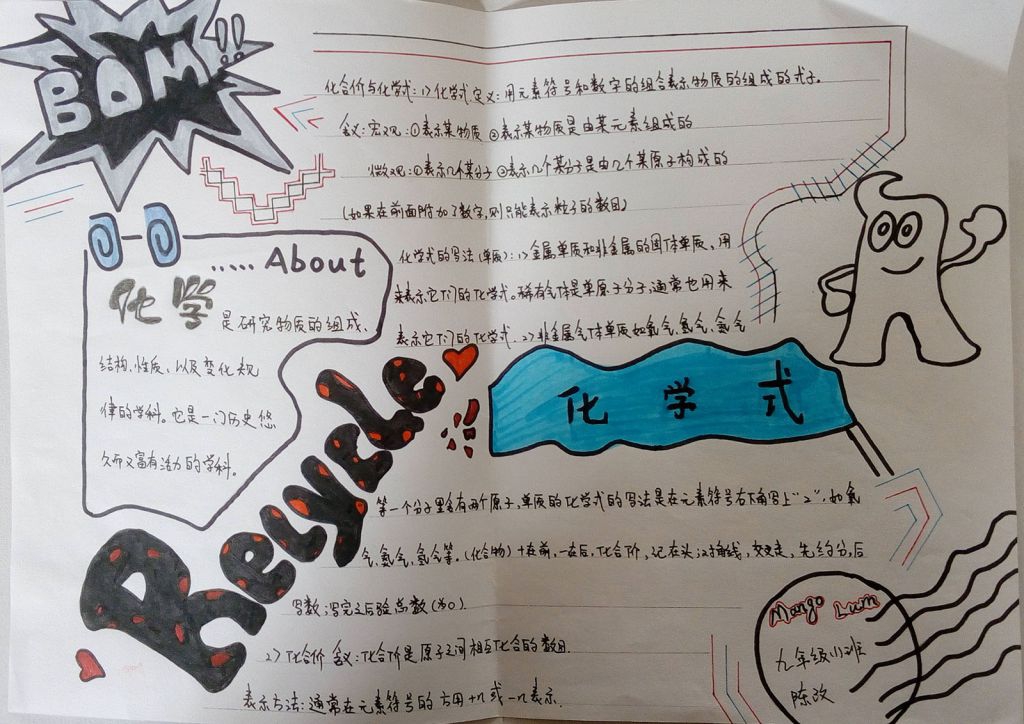 BOM!!
化合价与化学式:1>化学式.定义:用元素符号和数字的组合表示物质的组成的式子。
含义:宏观:①表示某物质 ②表示某物质是由某元素组成的
微观:①表示几个某分子 ②表示几个某分子是由几个某原子构成的
(如果在前面附加了数字,则只能表示粒子的数目)
化学式的写法(单质):1>金属单质和非金属的固体单质,用
来表示它们的化学式。稀有气体是单原子分子,通常也用来
表示它们的化学式.2>非金属气体单质如氧气、氮气、氯气
化学式
等一个分子里含有两个原子,单质的化学式的写法是在元素符号右下角写上"2".如氧
气,氮气,氢气等。(化合物)+在前,-在后,化合价,记在头,对角线,交叉走,先约分,后
写数;写完之后验总数(为0).
2>化合价 含义:化合价是原子之间相互化合的数目.
表示方法:通常在元素符号的方用+n或-n表示.
.....About
化学是研究物质的组成、
结构、性质、以及变化规
律的学科。它是一门历史悠
久而又富有活力的学科。
Recycle
Mango
九年级
陈